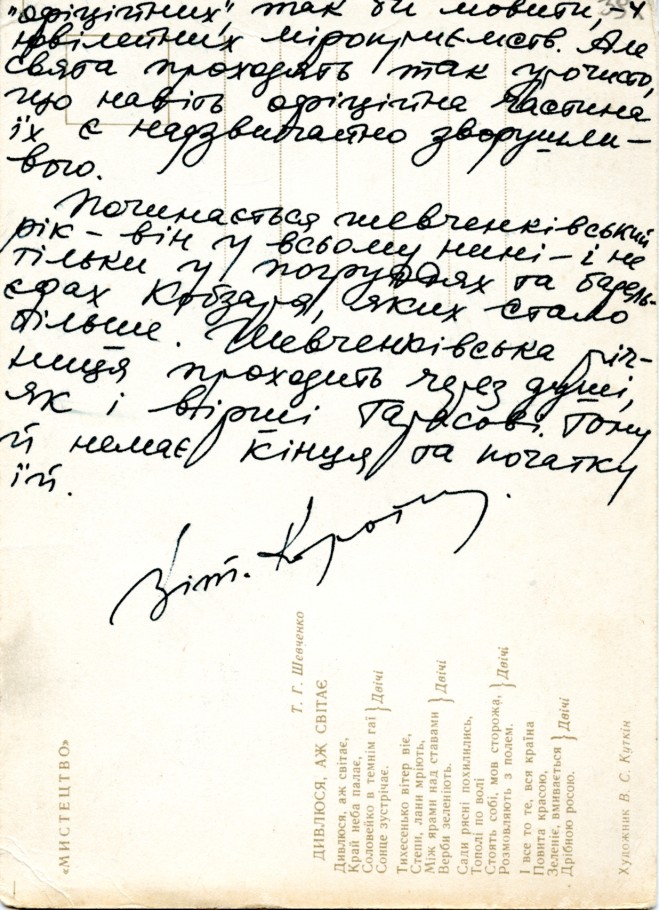 "офіційних", так би мовити, у
ювілейних міроприємств. Але
свята проходять так урочисто,
що навіть офіційна частина
їх є надзвичайно зворушли-
вою.
Починається шевченківський
рік – він у всьому нині – і не
тільки у погруддях та барель-
єфах Кобзаря, яких стало
більше. Шевченківська річ-
ниця проходить через душі,
як і вірші Тарасові. Тому
й немає кінця та початку
їй.
Віт. Короти
«МИСТЕЦТВО»
Т. Г. Шевченко
ДИВЛЮСЯ, АЖ СВІТАЄ
Дивлюся, аж світає,
Край неба палає,
Соловейко в темнім гаї } Двічі
Сонце зустрічає.
Тихесенько вітер віє,
Степи, лани мріють,
Між ярами над ставами } Двічі
Верби зеленіють.
Сади рясні похилились,
Тополі по волі
Стоять собі, мов сторожа, } Двічі
Розмовляють з полем.
І все то те, вся країна
Повита красою,
Зеленіє, вмивається } Двічі
Дрібною росою.
Художник В. С. Куткін